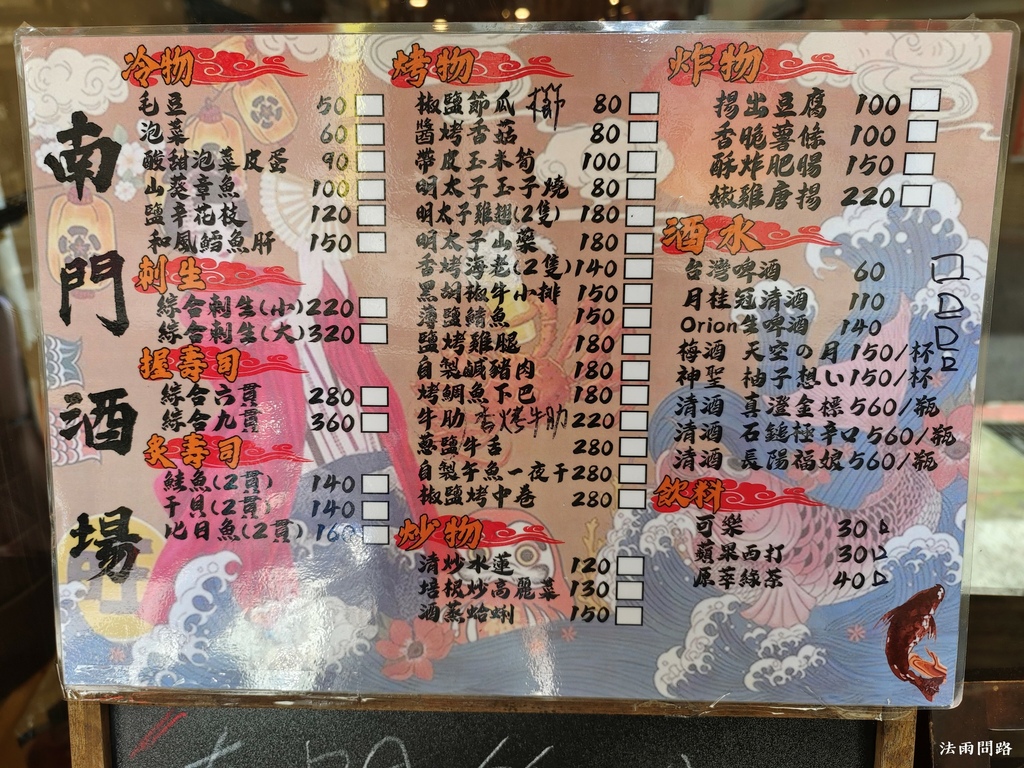 南門酒場
冷物
毛豆 50
泡菜 60
酸甜泡菜皮蛋 90
山葵章魚 100
鹽辛花枝 120
和風鱈魚肝 150
刺生
綜合刺生(小) 220
綜合刺生(大) 320
握壽司
綜合六貫 280
綜合九貫 360
炙壽司
鮭魚(2貫) 140
干貝(2貫) 140
比目魚(2貫) 160
烤物
椒鹽節瓜 80
醬烤香菇 80
帶皮玉米筍 100
明太子玉子燒 80
明太子雞翅(2隻) 180
明太子山藥 180
香烤海老(2隻) 140
黑胡椒牛小排 150
薄鹽鯖魚 150
鹽烤雞腿 180
自製鹹豬肉 180
烤鯛魚下巴 180
牛肋 香烤牛肋 220
蔥鹽牛舌 280
自製午魚一夜干 280
椒鹽烤中卷 280
炒物
清炒水蓮 120
培根炒高麗菜 130
酒蒸蛤蜊 150
炸物
揚出豆腐 100
香脆薯條 100
酥炸肥腸 150
嫩雞唐揚 220
酒水
台灣啤酒 60
月桂冠清酒 110
Orion生啤酒 140
梅酒 天空の月 150/杯
神聖 柚子想い 150/杯
清酒 真澄金標 560/瓶
清酒 石鎚極辛口 560/瓶
清酒 長陽福娘 560/瓶
飲料
可樂 30
蘋果西打 30
原萃綠茶 40
法雨問路